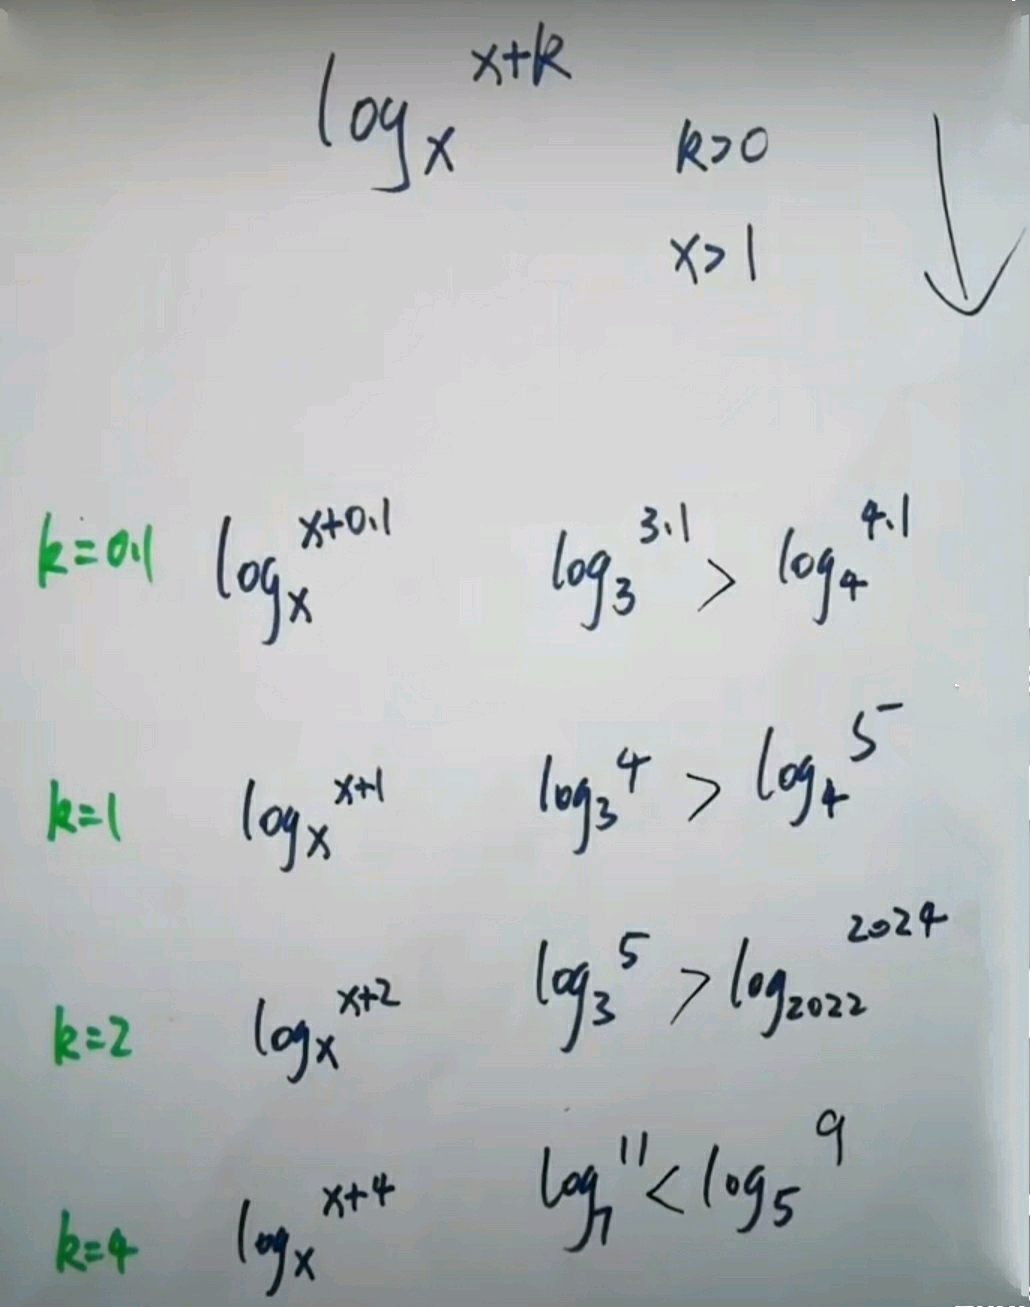 log_x^{x+k}
k>0
x>1
k=0.1 log_x^{x+0.1} log_3^{3.1} > log_4^{4.1}
k=1 log_x^{x+1} log_3^4 > log_4^5
k=2 log_x^{x+2} log_3^5 > log_{2022}^{2024}
k=4 log_x^{x+4} log_7^{11} < log_5^9